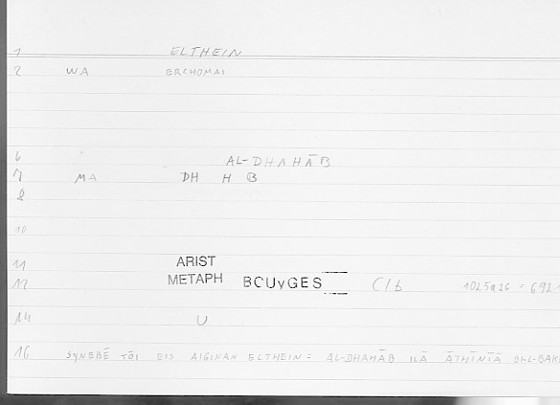 1 ELTHEIN
2 WA ERCHOMAI
6 AL-DHAHĀB
7 MA DH H B
8
10
11 ARIST
12 METAPH BOUyGES C/b 1025a26
14 U
16 SYNEBĒ TŌI EIS AIGINAN ELTHEIN = AL-DHAHĀB ILĀ ĀTHĪNĪĀ